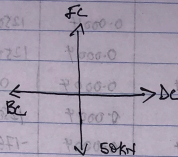 FC
BC
DC
50KN